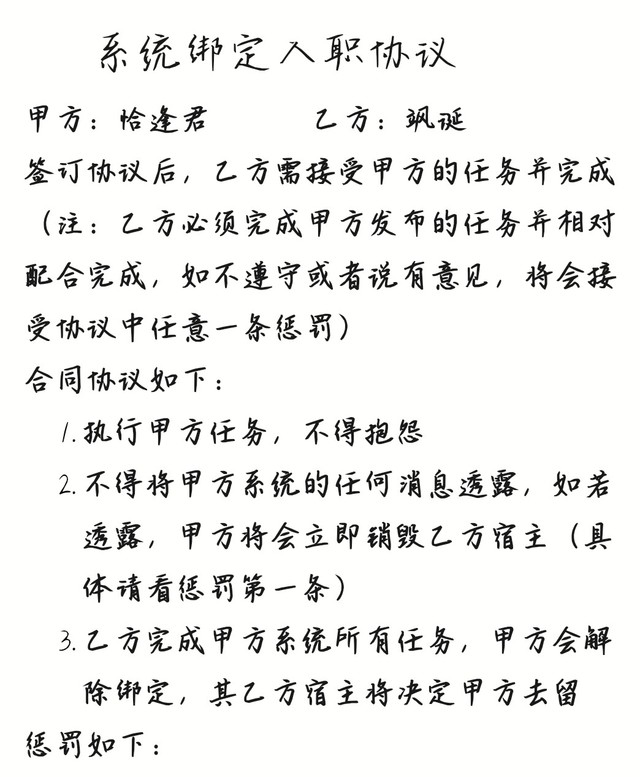 系统绑定入职协议
甲方：恰逢君 乙方：飒诞
签订协议后，乙方需接受甲方的任务并完成
（注：乙方必须完成甲方发布的任务并相对
配合完成，如不遵守或者说有意见，将会接
受协议中任意一条惩罚）
合同协议如下：
1.执行甲方任务，不得抱怨
2.不得将甲方系统的任何消息透露，如若
透露，甲方将会立即销毁乙方宿主（具
体请看惩罚第一条）
3.乙方完成甲方系统所有任务，甲方会解
除绑定，其乙方宿主将决定甲方去留
惩罚如下：